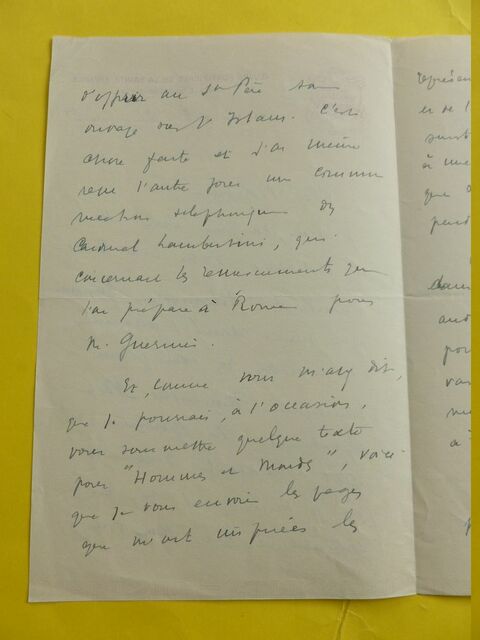 d'offrir au St Père son
ouvrage sur l'Islam. C'est
chose faite et j'ai même
reçu l'autre jour une commu
nication téléphonique du
Cardinal Lambertini, qui
concernait les remerciements que
l'on prépare à Rome pour
M. Guerinei.
Et, comme vous m'avez dit,
que je pourrais, à l'occasion,
vous soumettre quelque texte
pour "Hommes et Mondes", voici
que je vous envoie les pages
que m'ont inspirées les
représen
en de l'
à une
que
pend
dans